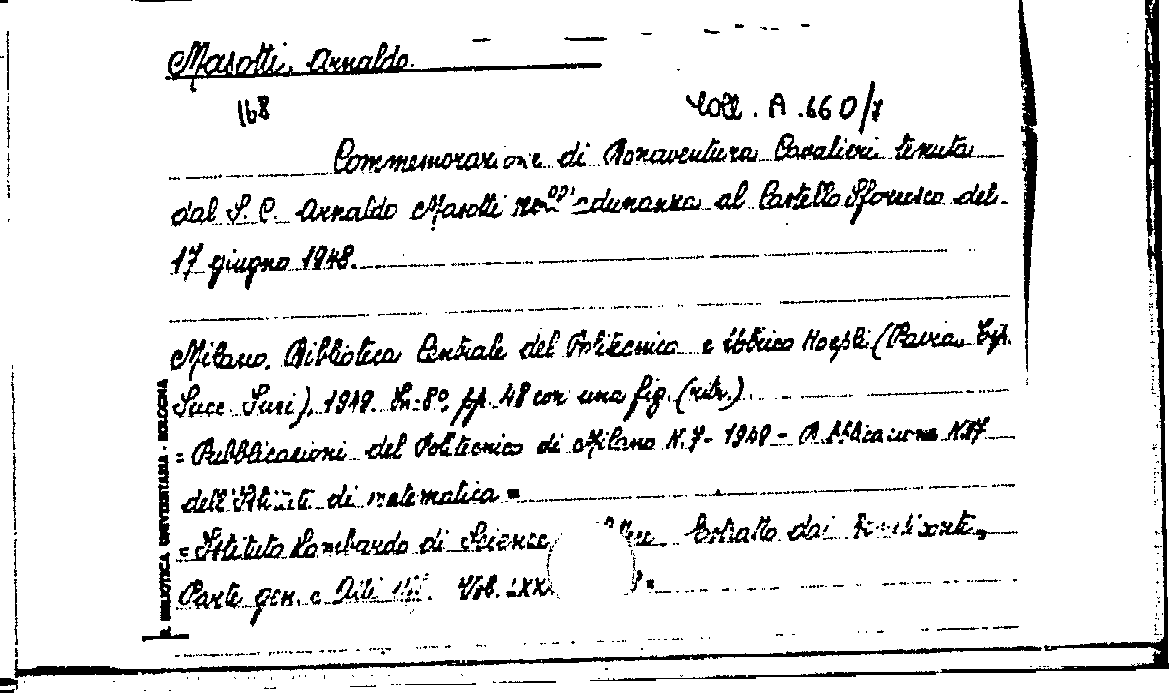 Masotti, Arnaldo.
168
Coll. A.660/7
Commemorazione di Bonaventura Cavalieri tenuta
dal S. C. Arnaldo Masotti adunanza al Castello Sforzesco del
17 giugno 1948.
Milano. Biblioteca Centrale del Politecnico e Ulrico Hoepli (Pavia. Tip.
Succ. Fusi), 1949. In-8º, pp. 48 con una fig. (ritr.)
= Pubblicazioni del Politecnico di Milano N.7 - 1949 - Pubblicazione N.
dell'Istituto di matematica =
= Istituto Lombardo di Scienze Estratto dai Rendiconti,
Parte gen. e Atti Uff. Vol. LXX =
R. BIBLIOTECA UNIVERSITARIA - BOLOGNA